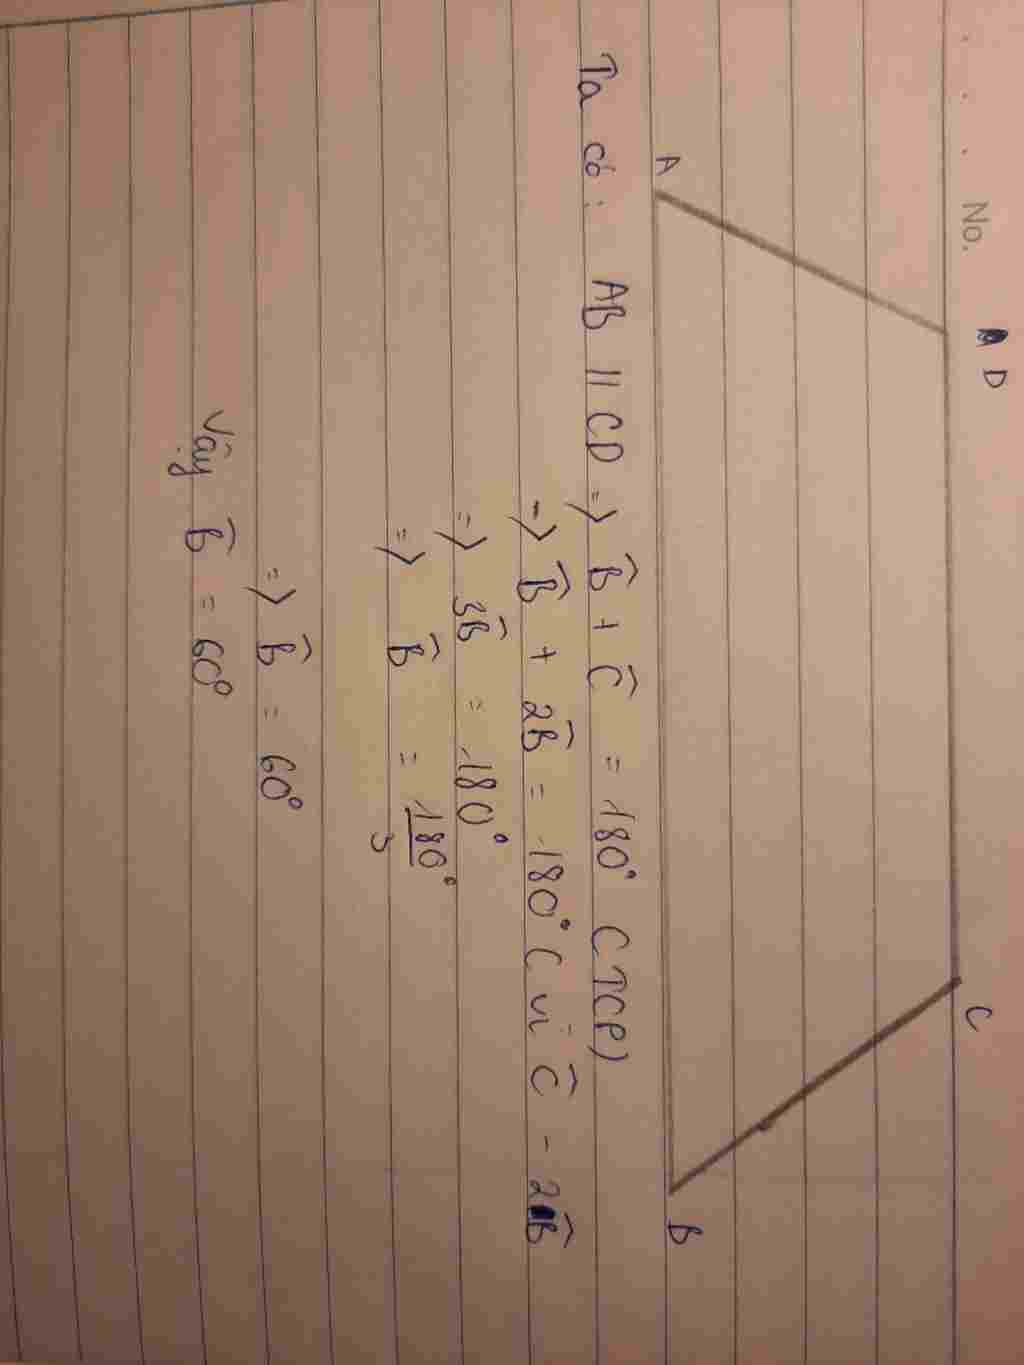 No.
D
C
A
B
Ta có: AB // CD => B̂ + Ĉ = 180° (TCP)
=> B̂ + 2B̂ = 180° (vì Ĉ = 2B̂
=> 3B̂ = 180°
=> B̂ = 180°/3
=> B̂ = 60°
Vậy B̂ = 60°